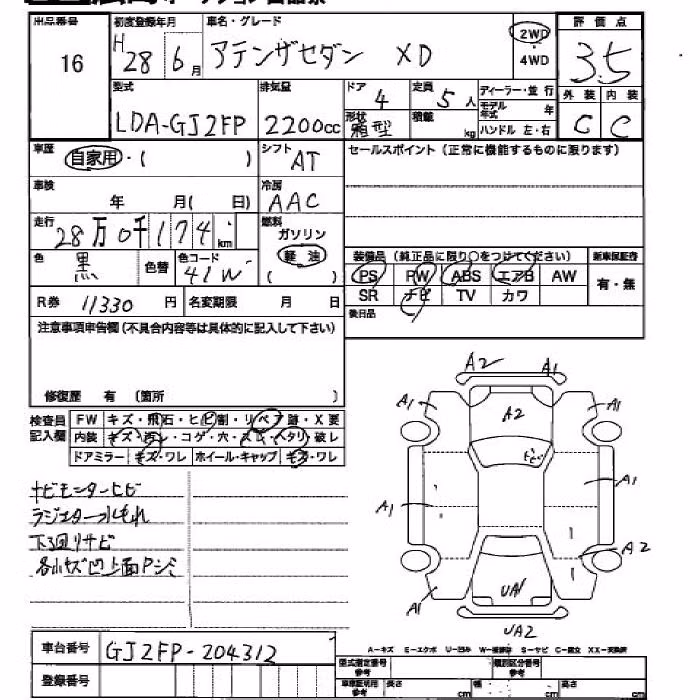 出品番号 初度登録年月 車名・グレード 2WD 評価点
16 H28 6月 アテンザセダン XD 4WD 3.5
型式 排気量 ドア 4 定員 5人 ディーラー・並行 外装 内装
LDA-GJ2FP 2200cc 形状 箱型 積載 kg モデル年式 年 C C
ハンドル 左・右
車歴 自家用・( ) シフト AT セールスポイント (正常に機能するものに限ります)
車検 年 月( 日) 冷房 AAC
走行 28万0千174km 燃料 ガソリン
軽油
( )
色 黒 色替 色コード 41W 装備品 (純正品に限り○をつけてください) 新車保証書
PS PW ABS エアB AW 有・無
SR ナビ TV カワ
R券 11330円 名変期限 月 日 後日品
注意事項申告欄(不具合内容等は具体的に記入して下さい)
修復歴 有 (箇所 )
検査員記入欄 FW キズ・飛石・ヒビ割・リペア跡・X要
内装 キズ・汚レ・コゲ・穴・スレ・ヘタリ・破レ
ドアミラー キズ・ワレ ホイール・キャップ キズ・ワレ
ナビモニターヒビ
ラジエター水もれ
下回りサビ
各小キズ凹 上面Pシミ
A2 A1
A1 A2 A1
ヒビ
A1 A1
A2
A1 UA1
UA2
車台番号 GJ2FP-204312
A-キズ E-エクボ U-凹み W-補修跡 S-サビ C-腐食 XX-交換済
登録番号
型式指定番号 参考 類別区分番号 参考
車庫証明用 参考 長さ cm 幅 cm 高さ cm